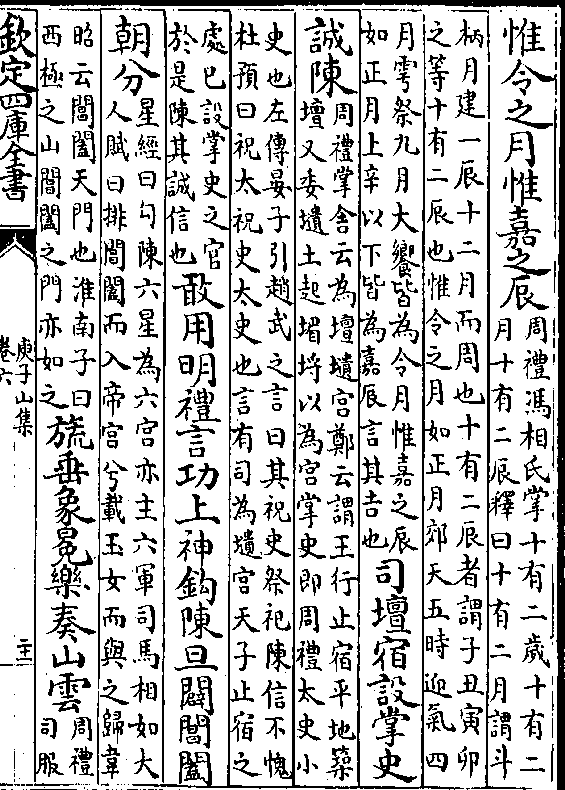 惟令之月惟嘉之辰周禮馮相氏掌十有二歲十有二
月十有二辰釋曰十有二月謂斗
柄月建一辰十二月而周也十有二辰者謂子丑寅卯
之等十有二辰也惟令之月如正月郊天五時迎氣四
月雩祭九月大饗皆為令月惟嘉之辰
如正月上辛以下皆為嘉辰言其吉也司壇宿設掌史
誠陳周禮掌舍云為壇壝宮鄭云謂王行止宿平地築
壇又委壝土起堳埒以為宮掌史即周禮太史小
史也左傳晏子引趙武之言曰其祝史祭祀陳信不愧
杜預曰祝太祝史太史也言有司為壝宮天子止宿之
處已設掌史之官
於是陳其誠信也敢用明禮言功上神鈎陳旦闢閶闔
朝分星經曰勾陳六星為六宮亦主六軍司馬相如大
人賦曰排閶闔而入帝宮兮載玉女而與之歸韋
昭云閶闔天門也淮南子曰
西極之山閶闔之門亦如之旒垂象冕樂奏山雲周禮
司服
欽定四庫全書
庾子山集
卷六
二十一